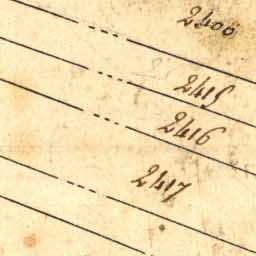 2400
2415
2416
2417